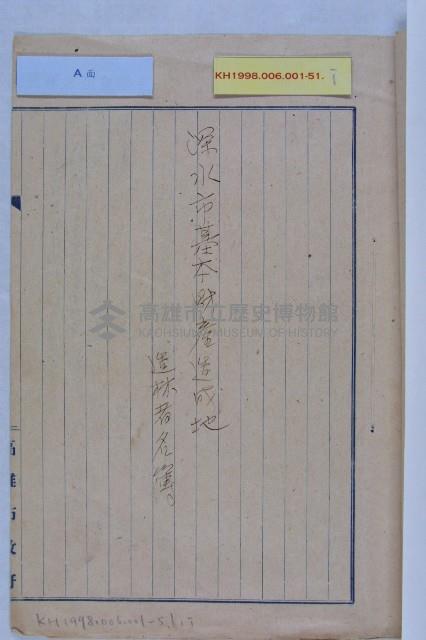 A面
KH1998.006.001-51.
深水市基本財產造成地
造林者名簿
高雄市立歷史博物館
KAOHSIUNG MUSEUM OF HISTORY
高雄市政府
KH1998.006.001-51